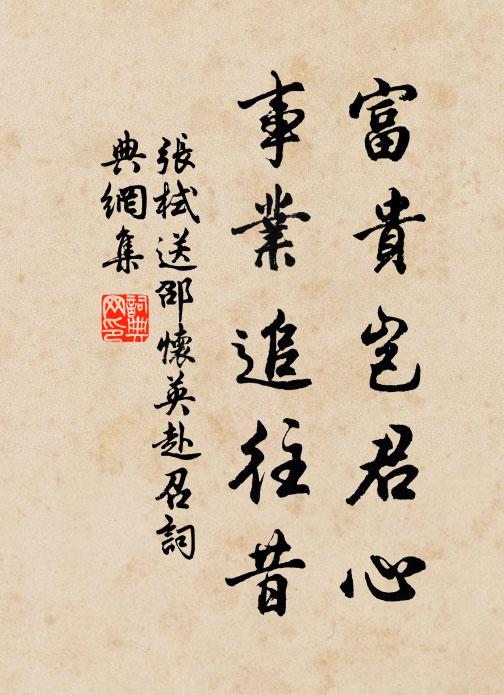 富貴岂君心
事業追往昔
張栻送邵懷英赴召詞
典網集
詞典网印